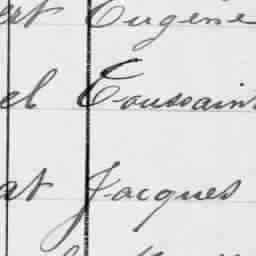 ert Eugène
el Toussaint
at Jacques